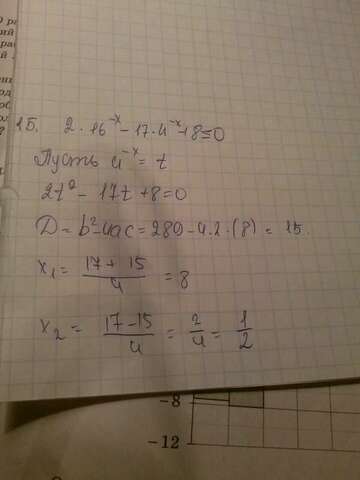 15. 2·16^-x - 17·4^-x + 8 = 0
Пусть 4^-x = t
2t² - 17t + 8 = 0
D = b² - 4ac = 289 - 4·2·(8) = 15.
x₁ = (17 + 15)/4 = 8
x₂ = (17 - 15)/4 = 2/4 = 1/2
-8
-12